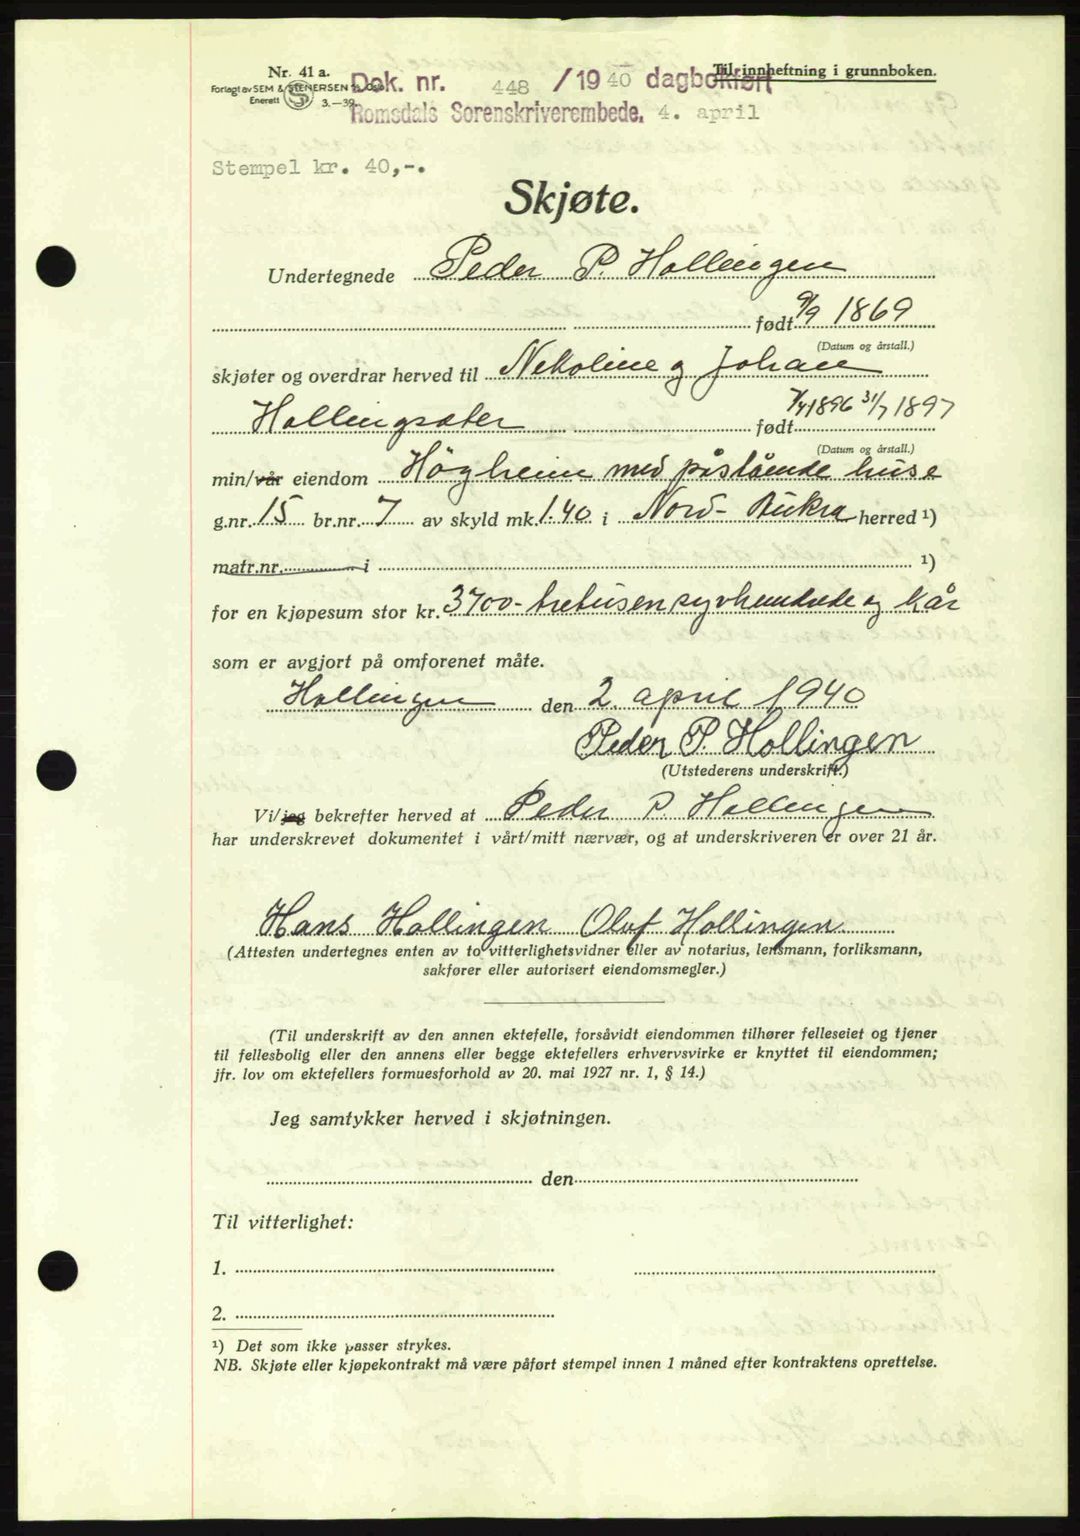 Nr. 41 a.
Forlagt av SEM & STENERSEN A/S, Oslo
Enerett S 3.—39.
Dok. nr. 448 /1940 dagbokført
Til innheftning i grunnboken.
Romsdals Sorenskriverembede, 4. april
Stempel kr. 40,-.
Skjøte.
Undertegnede Peder P. Hollingen
født 9/9 1869
(Datum og årstall.)
skjøter og overdrar herved til Nekoline og Johan
Hollingsæter født 7/4 1896 31/7 1897
(Datum og årstall.)
min/vår eiendom Högheim med påstående huse
g.nr. 15 br.nr. 7 av skyld mk. 1.40 i Nord-Aukra herred ¹)
matr.nr. i ¹)
for en kjøpesum stor kr. 3700- tretusensyvhundrede og kår
som er avgjort på omforenet måte.
Hollingen den 2 april 1940
Peder P. Hollingen
(Utstederens underskrift.)
Vi/jeg bekrefter herved at Peder P. Hollingen
har underskrevet dokumentet i vårt/mitt nærvær, og at underskriveren er over 21 år.
Hans Hollingen Olaf Hollingen
(Attesten undertegnes enten av to vitterlighetsvidner eller av notarius, lensmann, forliksmann,
sakfører eller autorisert eiendomsmegler.)
(Til underskrift av den annen ektefelle, forsåvidt eiendommen tilhører felleseiet og tjener
til fellesbolig eller den annens eller begge ektefellers erhvervsvirke er knyttet til eiendommen;
jfr. lov om ektefellers formuesforhold av 20. mai 1927 nr. 1, § 14.)
Jeg samtykker herved i skjøtningen.
den
Til vitterlighet:
1.
2.
¹) Det som ikke passer strykes.
NB. Skjøte eller kjøpekontrakt må være påført stempel innen 1 måned efter kontraktens oprettelse.